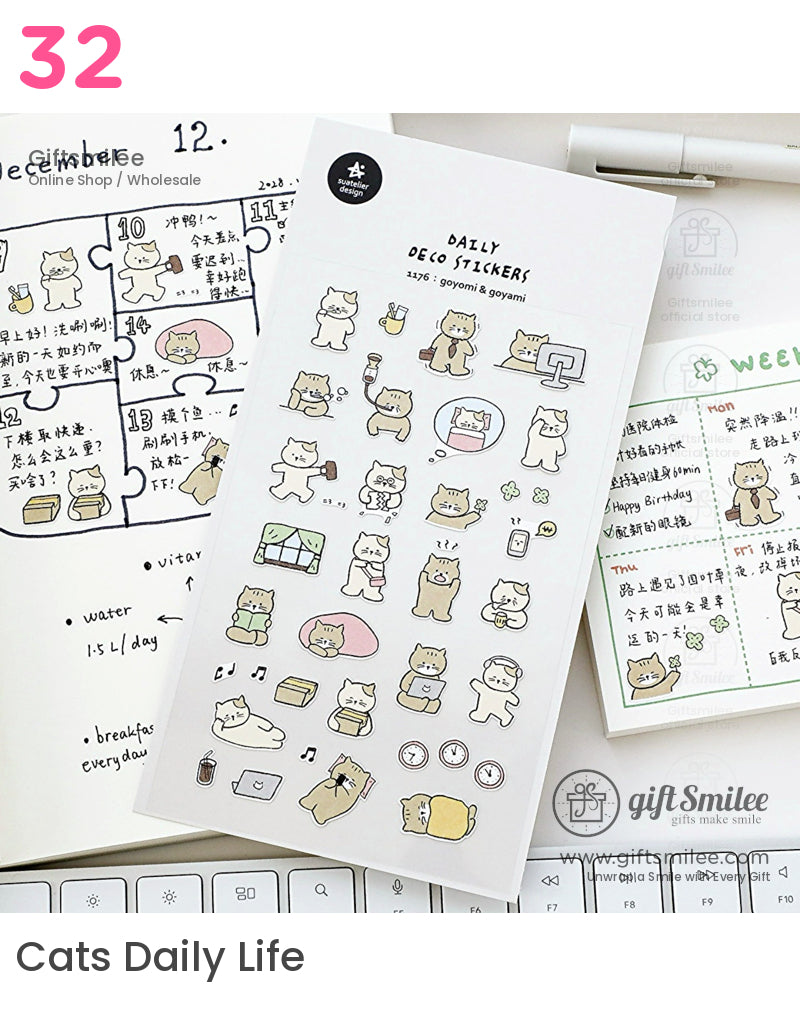 32
12.
December
Giftsmilee
Online Shop / Wholesale
suatelier
design
DAILY
DECO STICKERS
1176 : goyomi & goyami
gift Smilee
Giftsmilee
official store
10
冲鸭!~
今天差点
要迟到...
幸好跑
得快..
11
早上好! 洗唰唰!
新的一天如约而
至,今天也要开心噢
14
休息~
休息~
12
下楼取快递.
怎么会这么重?
买啥了?
13
摸个鱼...
刷刷手机,
放松一
下下!
• vitar
• water
1.5 L/day
• breakfas
everyday
WEEK
Mon
突然降温!!
坚持每日健身60min
Happy Birthday
配新的眼镜
Thu
路上遇见了四叶草
今天可能会是幸
运的一天!
Fri
gift Smilee
gifts make smile
www.giftsmilee.com
Unwrap a Smile with Every Gift
F6
F7
F8
F9
F10
Cats Daily Life